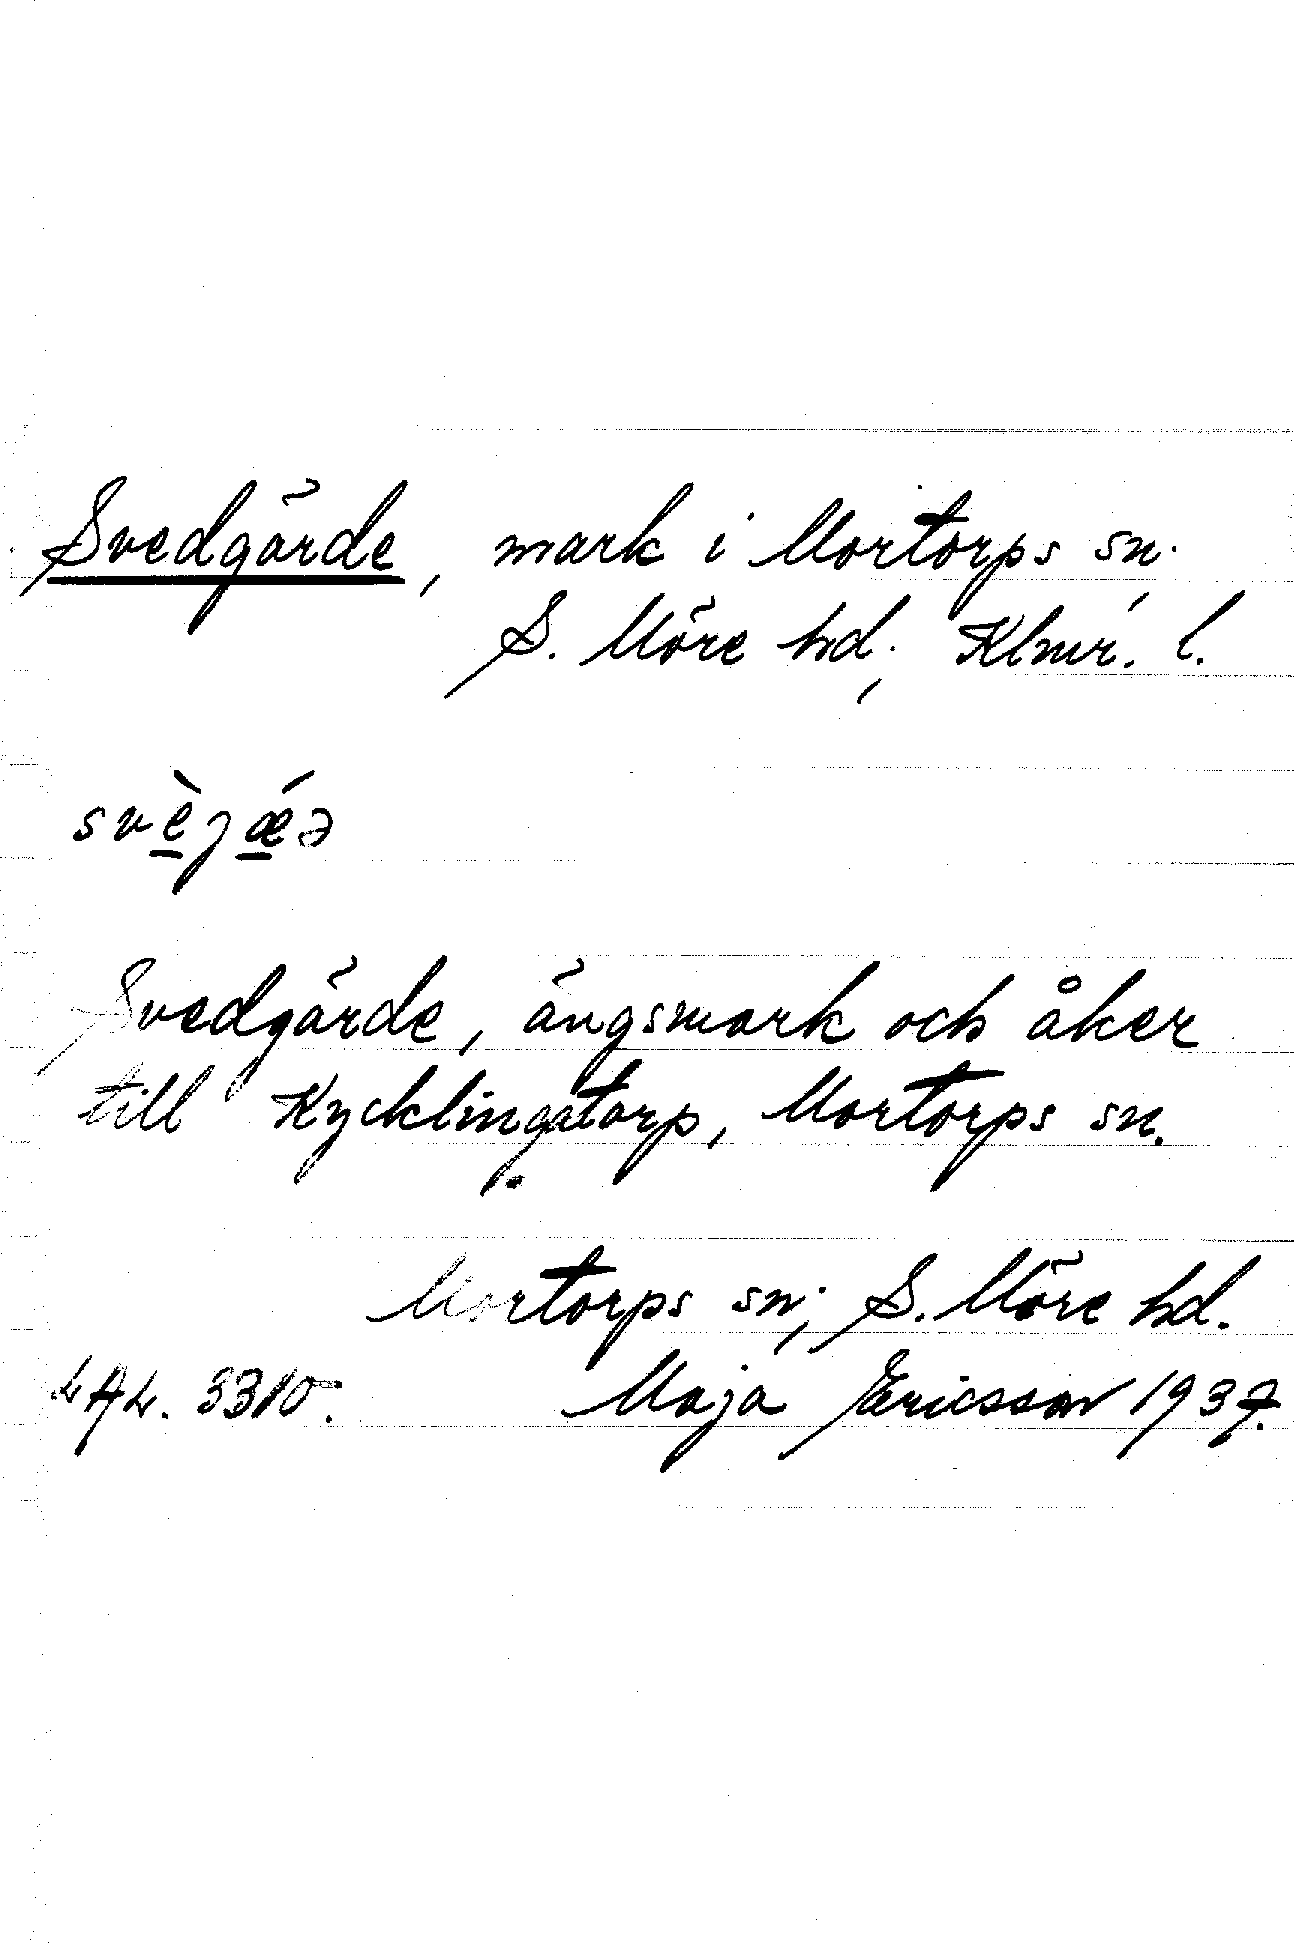 Svedgärde, mark i Mortorps sn.,
S. Möre hd., Klmr. l.
svèjǽə
Svedgärde, ängsmark och åker
till Kycklingatorp, Mortorps sn.
Mortorps sn; S. Möre hd.
LAL. 3310. Maja Ericsson 1937.